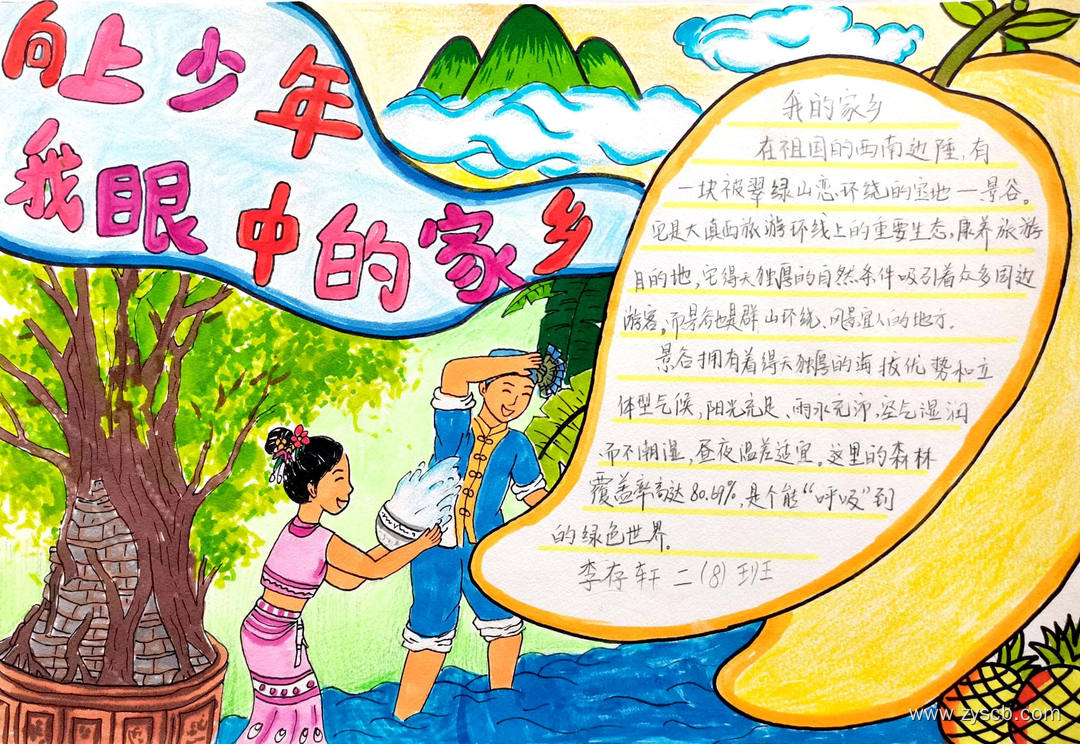 向上少年
我眼中的家乡
我的家乡
在祖国的西南边陲,有
一块被翠绿山恋环绕的宝地一景谷。
它是大滇西旅游环线上的重要生态,康养旅游
目的地,它得天独厚的自然条件吸引着众多周边
游客。而景谷也是群山环绕、风景宜人的地方。
景谷拥有着得天独厚的海拔优势和立
体型气候,阳光充足、雨水充沛,空气湿润
而不潮湿,昼夜温差适宜。这里的森林
覆盖率高达80.69%,是个能“呼吸”到
的绿色世界。
李存轩 二(8)班
www.zyscb.com